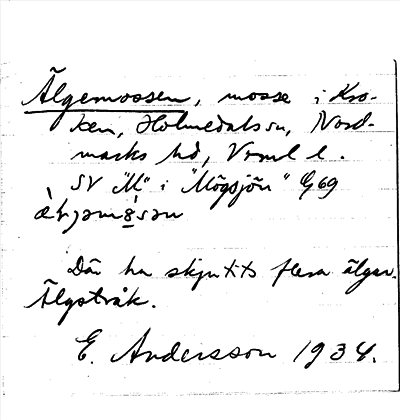 Älgemossen, mosse i Kro-
ken, Holmedals sn, Nord-
marks hd, Vrml l.
SV "M" i "Mögsjön" G69
Där ha skjutits flera älgar.
Älgstråk.
E. Andersson 1934.